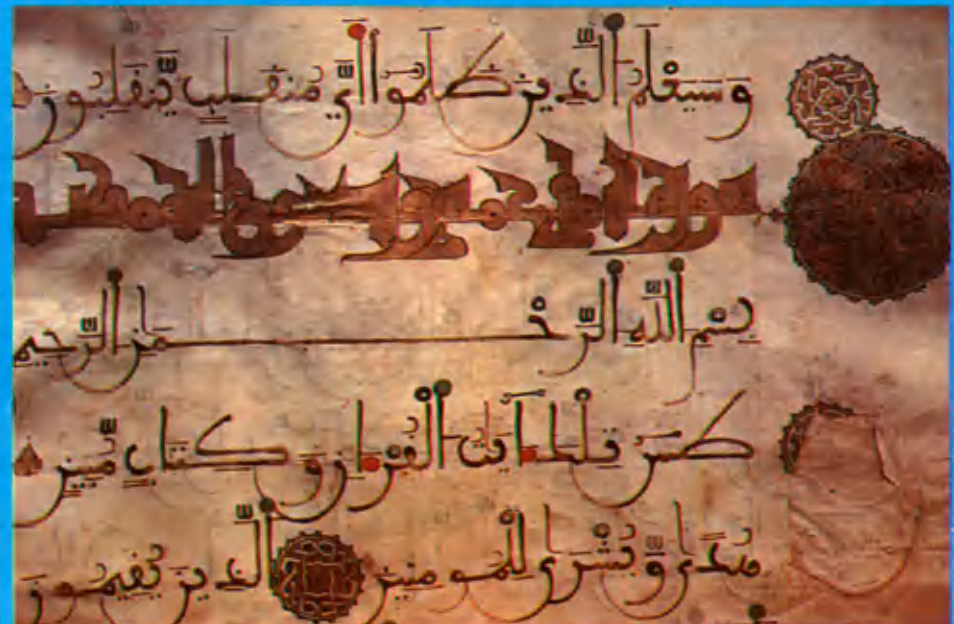 وَسَيَعْلَمُ الَّذِينَ ظَلَمُوا أَيَّ مُنقَلَبٍ يَّنقَلِبُونَ
سورة النمل
بِسْمِ اللَّهِ الرَّحْمَٰنِ الرَّحِيمِ
طس تِلْكَ ءَايَٰتُ الْقُرْءَانِ وَكِتَابٍ مُّبِينٍ
هُدًى وَّبُشْرَىٰ لِلْمُومِنِينَ الَّذِينَ يُقِيمُونَ